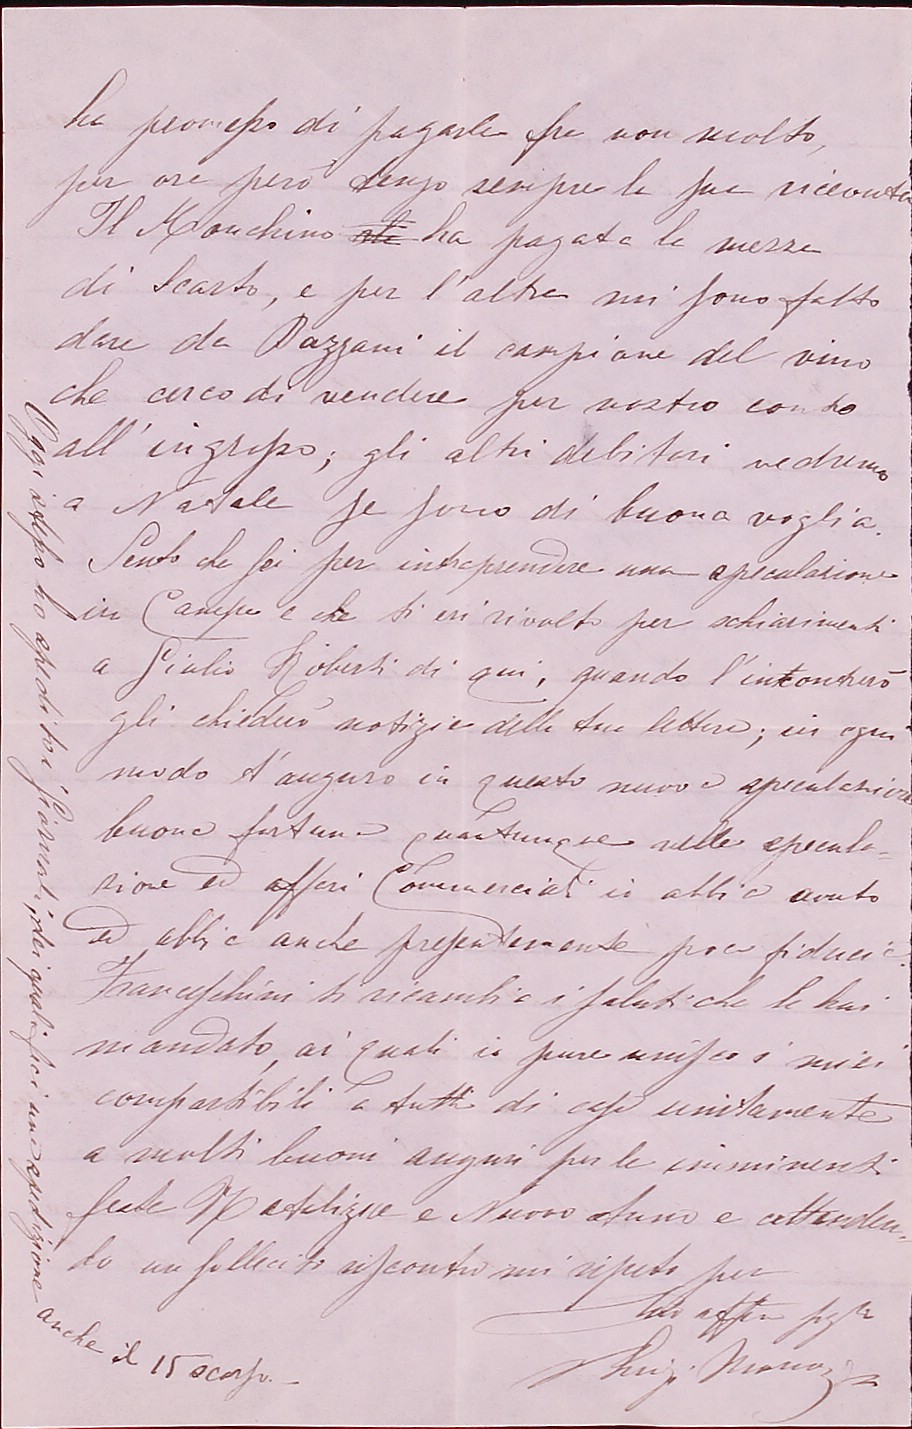 ha promesso di pagarla fra non molto,
per ora però tengo sempre la sua ricevuta
Il Monchino ha pagata la mezza
di scarto, e per l'altra mi sono fatto
dare da Bazzani il campione del vino
che cerco di vendere per vostro conto
all'ingrosso; gli altri debitori vedremo
a Natale se sono di buona voglia.
Sento che sei per intraprendere una speculazione
in Campo e che ti eri rivolto per schiarimenti
a Giulio Roberti di qui, quando l'incontrerò
gli chiederò notizie della tua lettera; in ogni
modo t'auguro in questa nuova speculazione
buona fortuna quantunque nelle specula-
zione ed affari Commerciali io abbia avuto
ed abbia anche presentemente poca fiducia.
Franceschini ti ricambia i saluti che le hai
mandato, ai quali io pure unisco i miei
compartibili a tutti di casa unitamente
a molti buoni auguri per le imminenti
feste Natalizie e Nuovo anno e attenden-
do un sollecito riscontro mi ripeto per
tuo affmo
Luigi
Oggi stesso ho spedito i Giornali, dei quali feci una spedizione anche il 15 scorso.